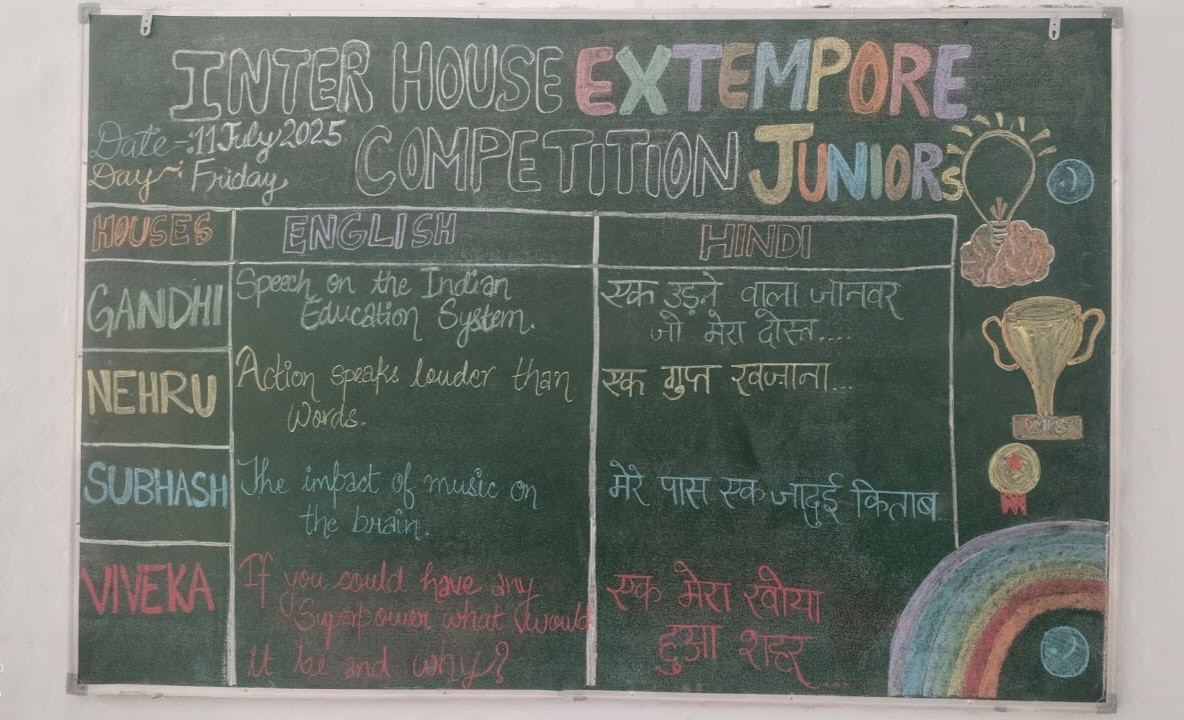 INTER HOUSE EXTEMPORE
Date -: 11 July 2025
COMPETITION JUNIORS
Day -: Friday
HOUSES ENGLISH HINDI
GANDHI
Speech on the Indian
Education System.
एक उड़ने वाला जानवर
जो मेरा दोस्त....
NEHRU
Action speaks louder than
Words.
एक गुप्त खजाना...
SUBHASH
The impact of music on
the brain.
मेरे पास एक जादुई किताब..
VIVEKA
If you could have any
Superpower what would
it be and why?
एक मेरा खोया
हुआ शहर....